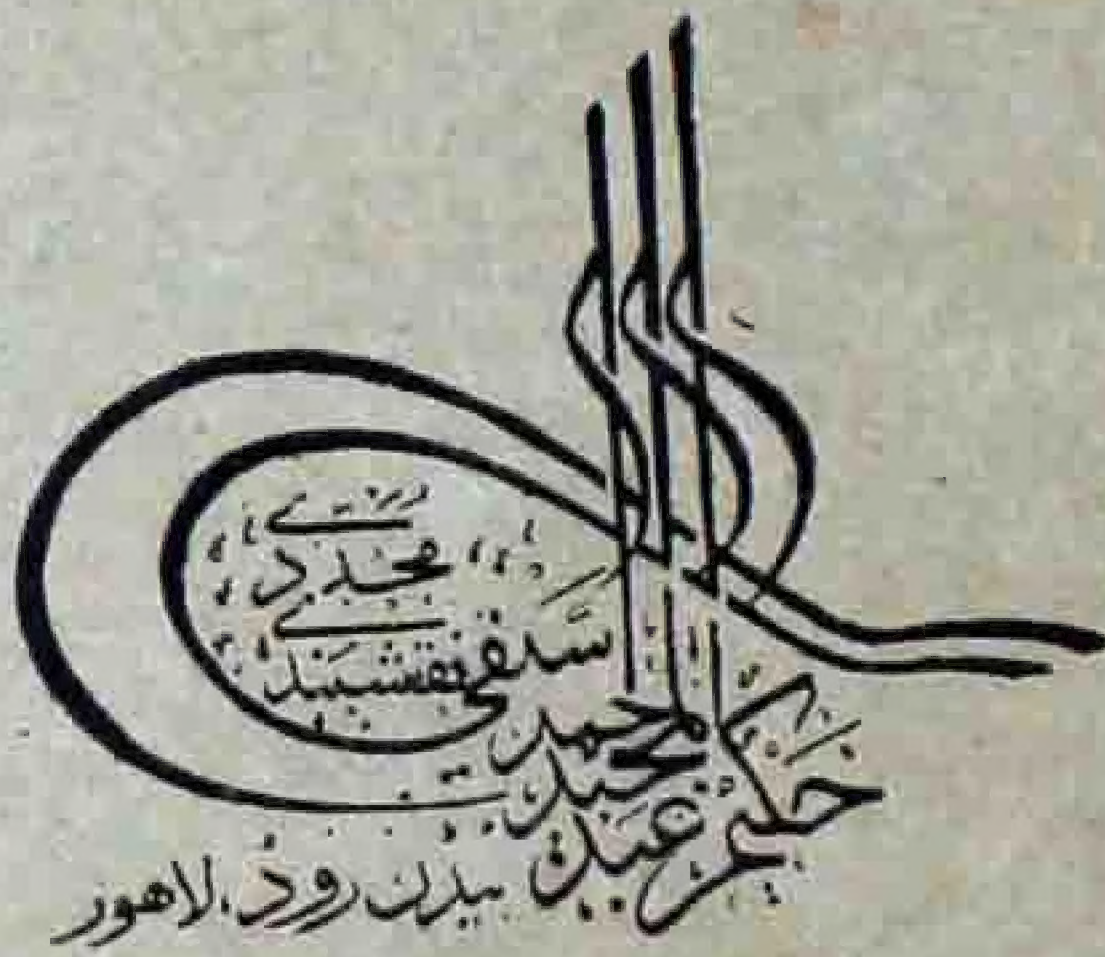 حکیم عبد
المجید
احمد
سیفی نقشبندی
مجددی
بیڈن روڈ، لاہور